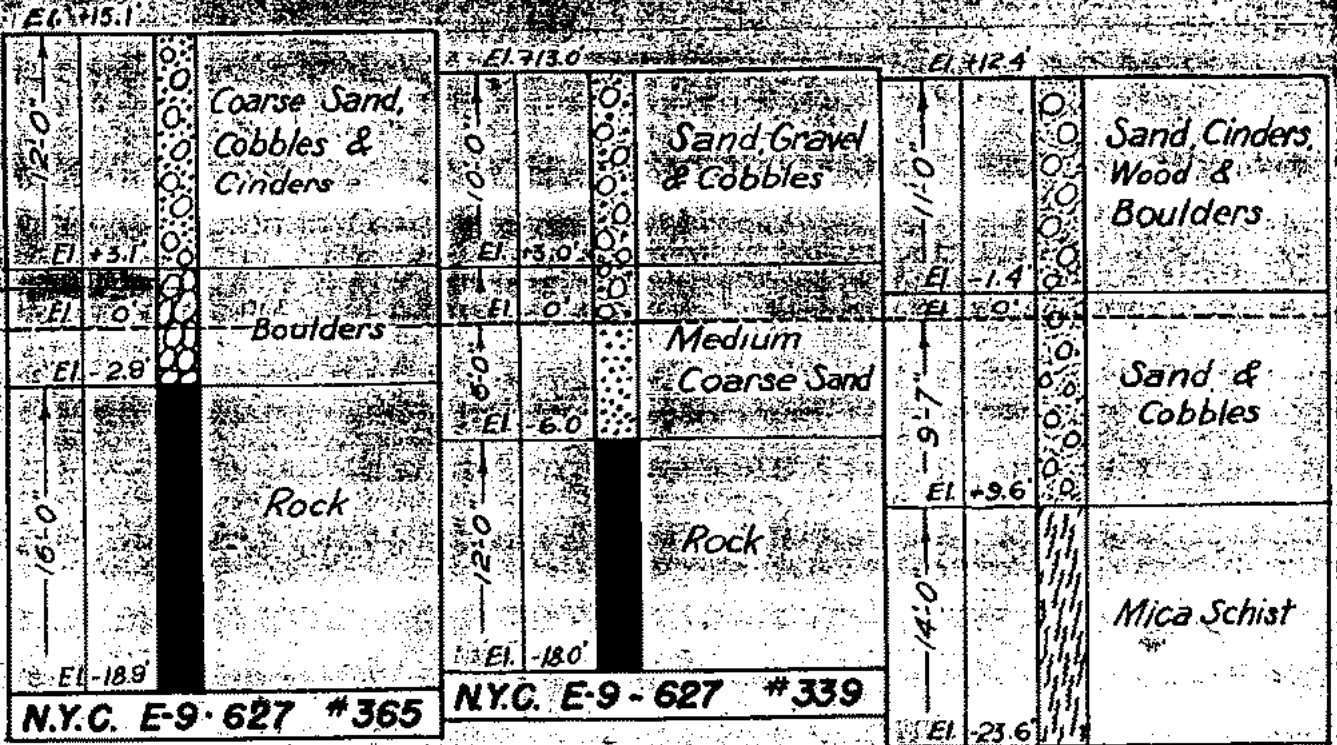 El. +15.1'
12'-0"
Coarse Sand,
Cobbles &
Cinders
El. +3.1'
El. 0'
Boulders
El. -2.9'
16'-0"
Rock
El. -18.9'
N.Y.C. E-9-627 #365
El. +13.0'
10'-0"
Sand, Gravel
& Cobbles
El. +3.0'
El. 0'
Medium
Coarse Sand
6'-0"
El. -6.0'
12'-0"
Rock
El. -18.0'
N.Y.C. E-9-627 #339
El. +12.4'
11'-0"
Sand, Cinders,
Wood &
Boulders
El. -1.4'
El. 0'
9'-7"
Sand &
Cobbles
El. +9.6'
14'-0"
Mica Schist
El. -23.6'